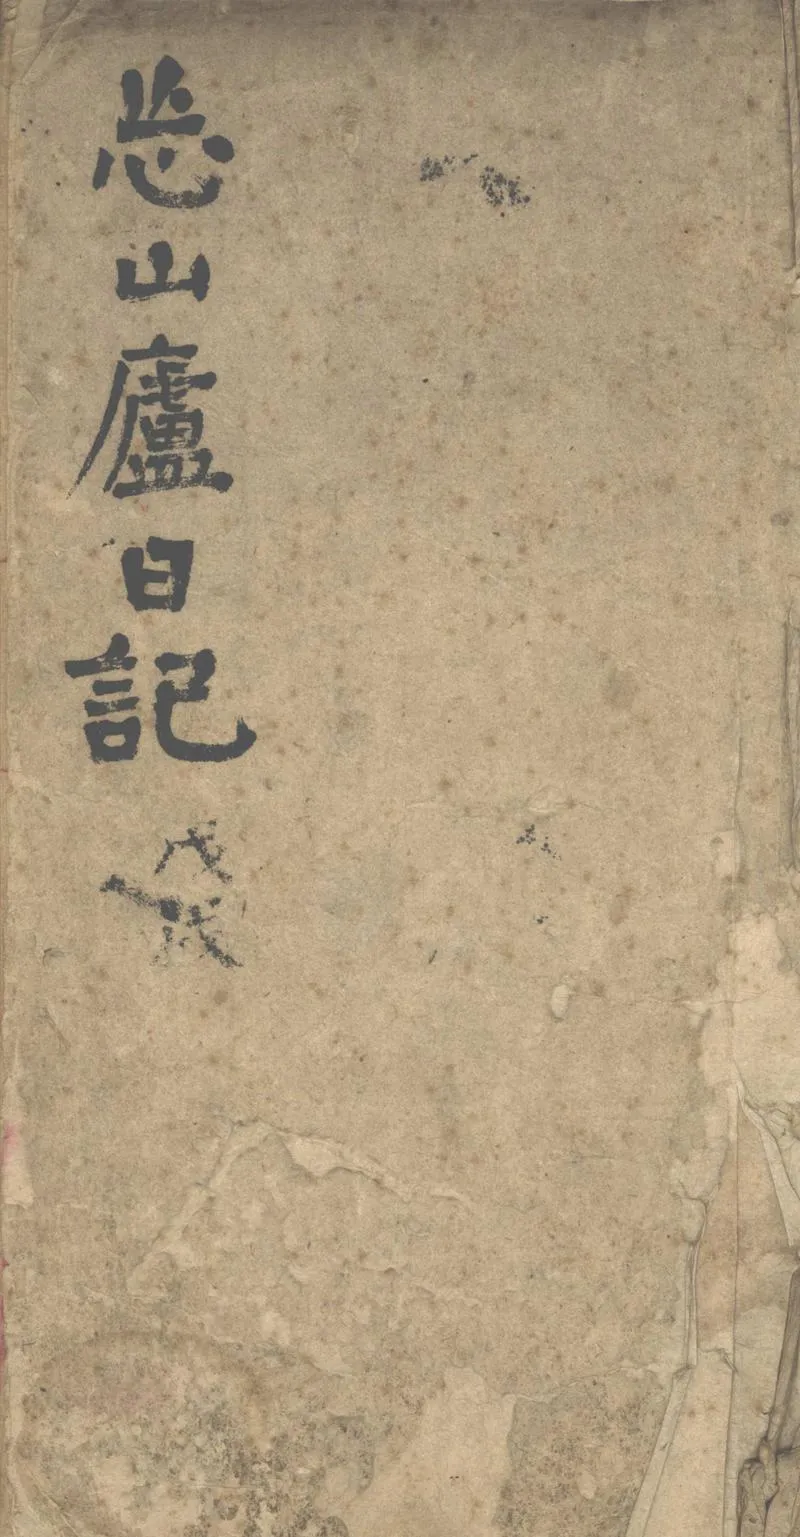 忘山廬日記
戊戌